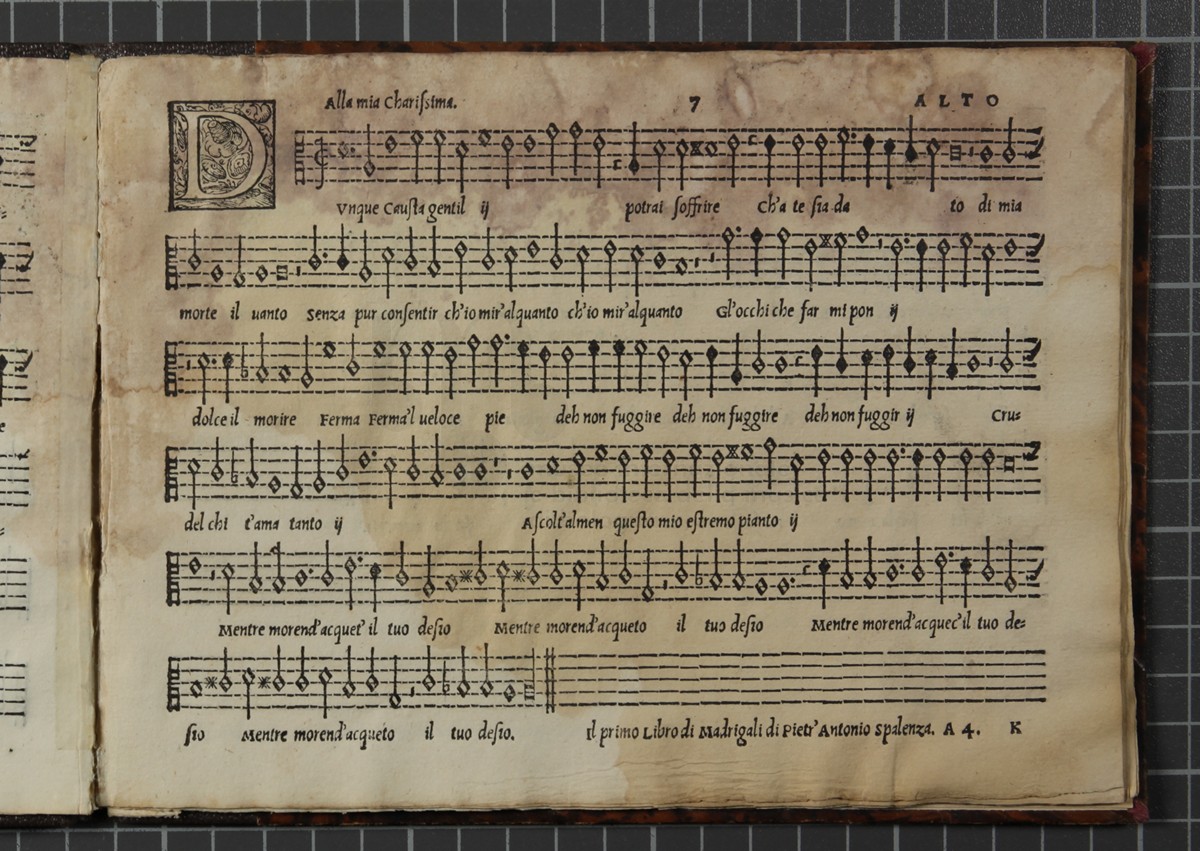 Alla mia Chariſsima. 7 ALTO
D
Vnque Cauſta gentil ij potrai ſoffrire Ch'a te ſia da to di mia
morte il uanto Senza pur conſentir ch'io mir'alquanto ch'io mir'alquanto Gl'occhi che far mi pon ij
dolce il morire Ferma Ferma'l ueloce pie deh non fuggire deh non fuggire deh non fuggir ij Cru=
del chi t'ama tanto ij Aſcolt'almen queſto mio eſtremo pianto ij
Mentre morend'acquet' il tuo deſio Mentre morend'acqueto il tuo deſio Mentre morend'acquet'il tuo de=
ſio Mentre morend'acqueto il tuo deſio. Il primo Libro di Madrigali di Pietr'Antonio Spalenza. A 4. K